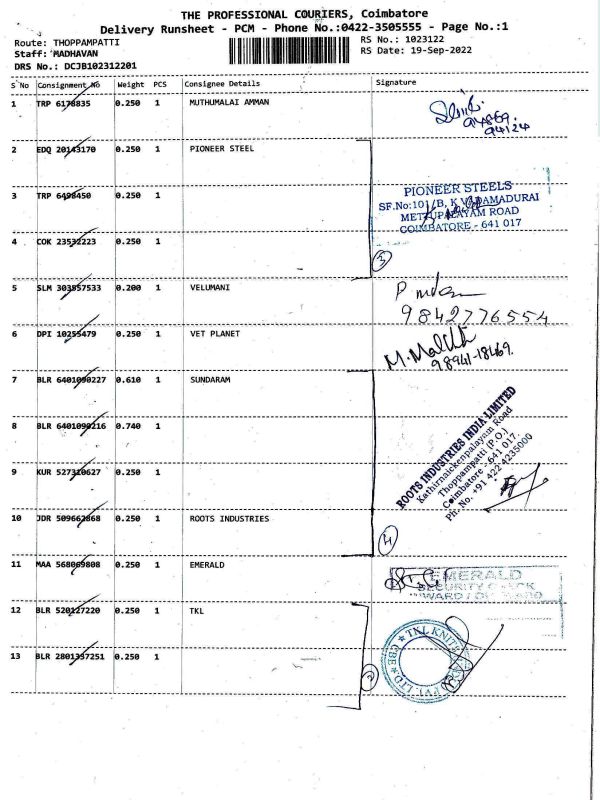 THE PROFESSIONAL COURIERS, Coimbatore
Delivery Runsheet - PCM - Phone No.:0422-3505555 - Page No.:1
Route: THOPPAMPATTI
RS No.: 1023122
Staff: MADHAVAN
RS Date: 19-Sep-2022
DRS No.: DCJB102312201
S No Consignment No Weight PCS Consignee Details Signature
1 TRP 6178835 0.250 1 MUTHUMALAI AMMAN
94124
2 EDQ 20143170 0.250 1 PIONEER STEEL
3 TRP 6498450 0.250 1
PIONEER STEELS
SF.No:101/B, K VADAMADURAI
METTUPALAYAM ROAD
COIMBATORE - 641 017
4 COK 23532223 0.250 1
3
5 SLM 303557533 0.200 1 VELUMANI
9842776554
6 DPI 10255479 0.250 1 VET PLANET
98941-18469
7 BLR 6401090227 0.610 1 SUNDARAM
8 BLR 6401090216 0.740 1
ROOTS INDUSTRIES INDIA LIMITED
Kathirnaickenpalayam Road
Thoppampatti (P.O.)
Coimbatore - 641 017.
Ph. No. +91 422 4235000
9 KUR 527310627 0.250 1
10 JDR 509662868 0.250 1 ROOTS INDUSTRIES
4
11 MAA 568069808 0.250 1 EMERALD
EMERALD
12 BLR 520127220 0.250 1 TKL
13 BLR 2801357251 0.250 1
2